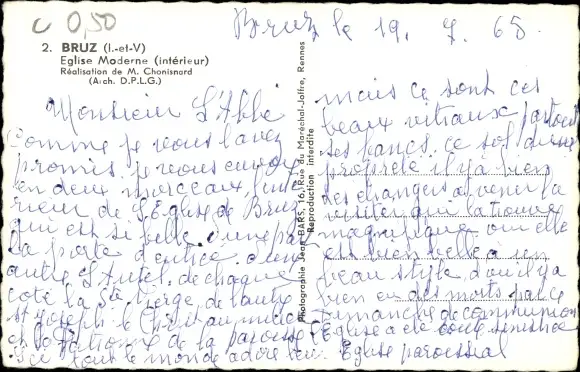 C 0,50
Bruz le 19. 7. 65
2. BRUZ (I.-et-V)
Eglise Moderne (intérieur)
Réalisation de M. Chonisnard
(Arch. D.P.L.G.)
Photographie Jean BARS, 16, Rue du Maréchal-Joffre, Rennes
Reproduction interdite
Monsieur L'Abbé
Comme je vous l'avez
promis je vous envoie
en deux morceaux, l'inté
rieur de L'Eglise de Bruz
qui est si belle, d'une part
La porte d'entrée
autre L'Autel, de chaque
coté la Ste Vierge, de l'autre
St Joseph le Christ au milieu
de la paroisse
tout le monde adore
mais ce sont ces
beaux vitraux partout
ses bancs, ce sol d'une
propreté il y a bien
des étrangers a venir la
visiter qui la trouve
magnifique oui elle
est bien belle a un
beau style, oui il y a
bien eu des morts par ce
dimanche de communion
Eglise a été
Eglise paroissial